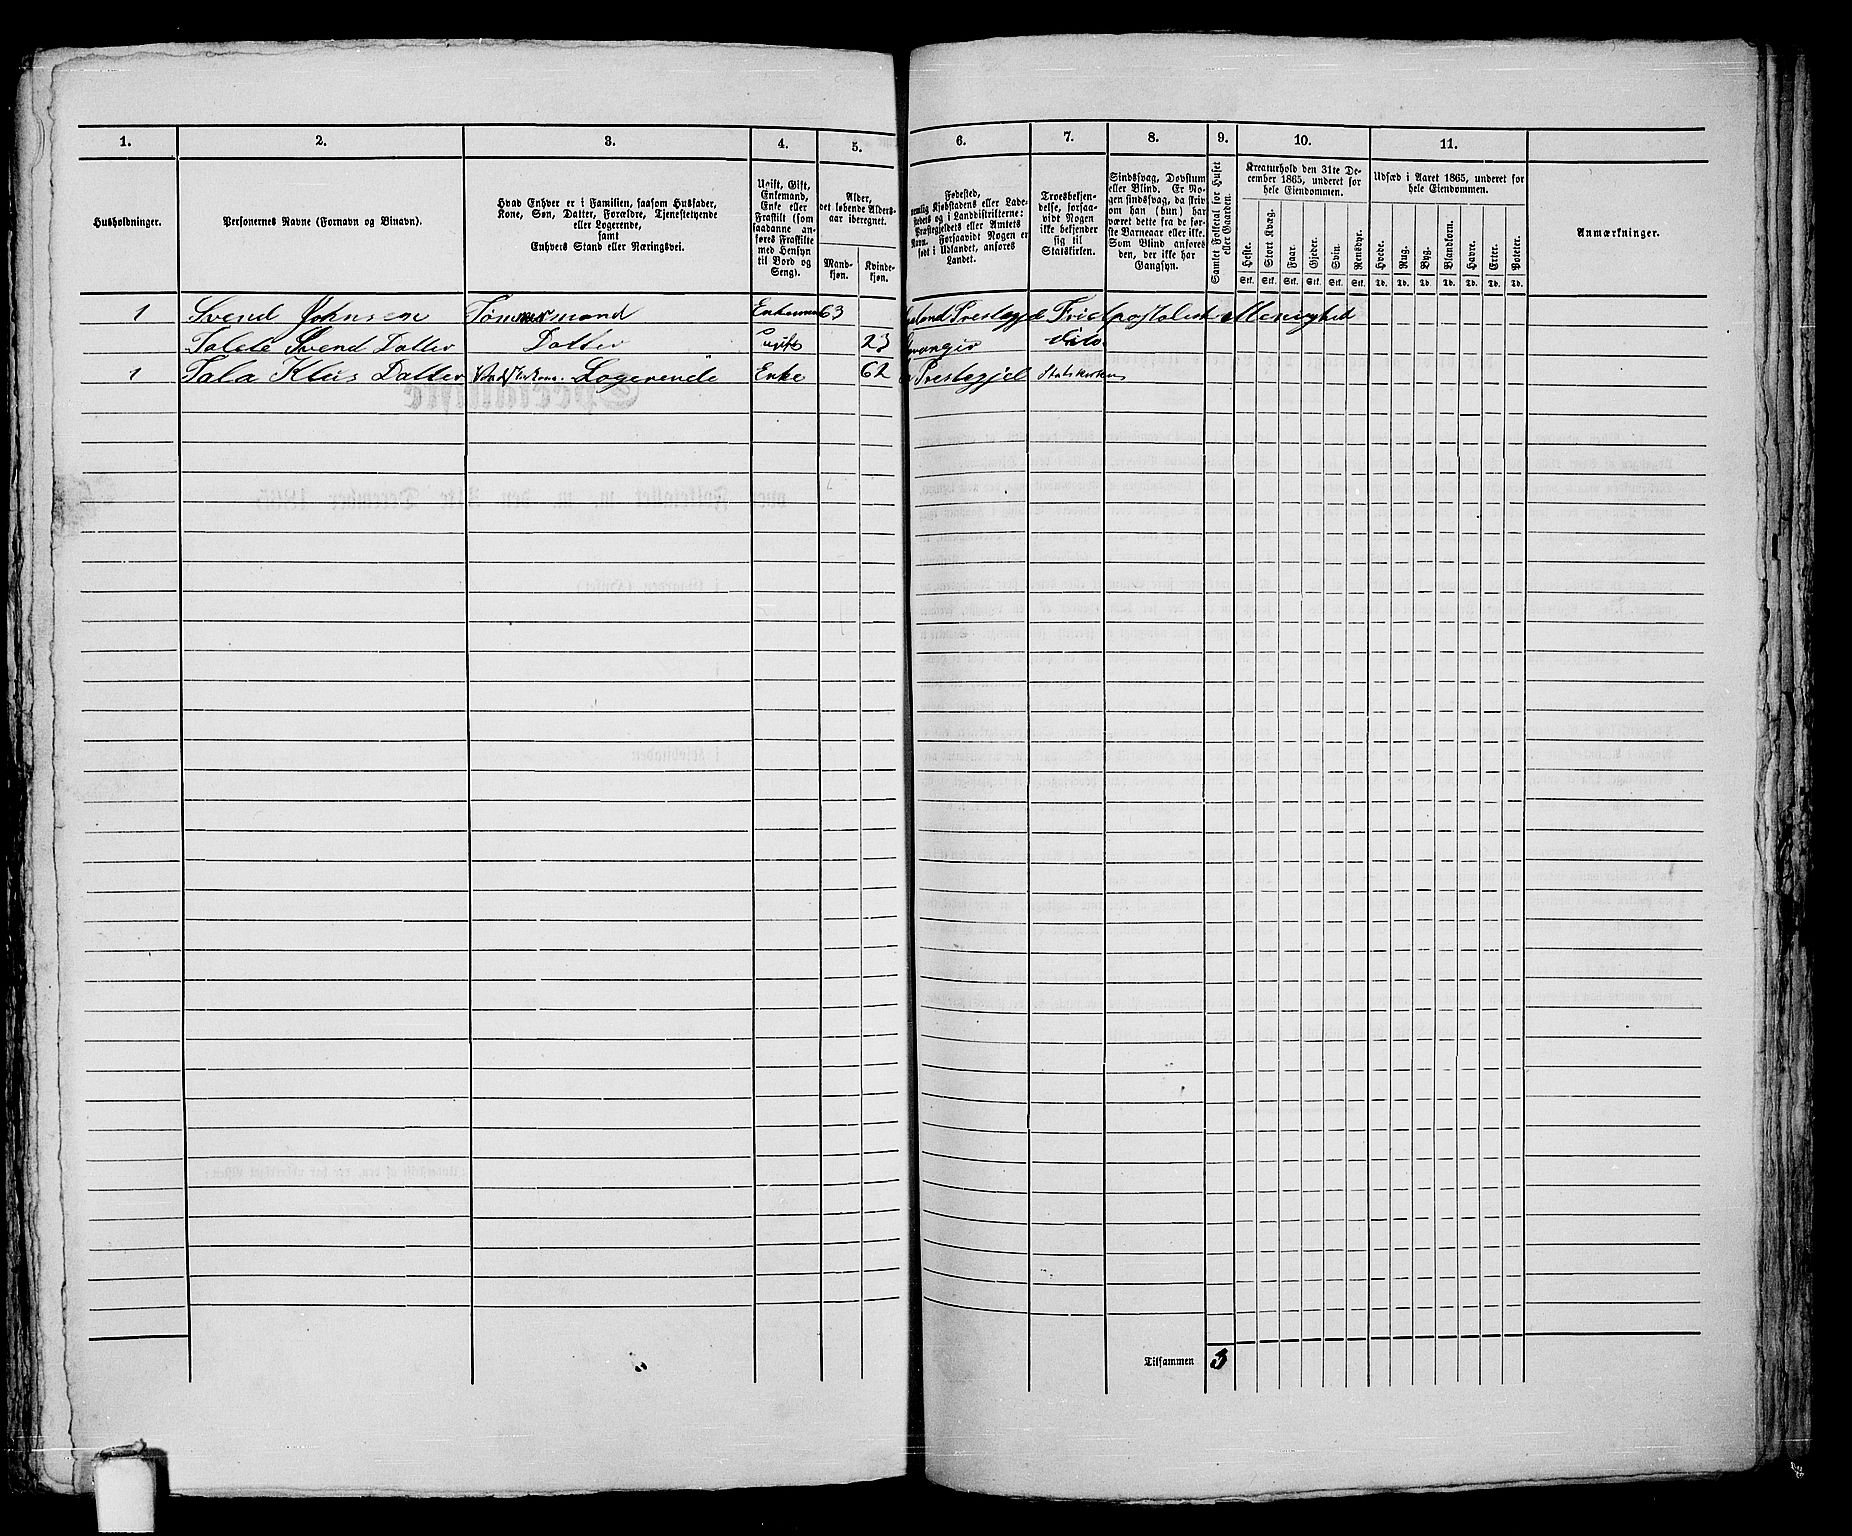 1. 2. 3. 4. 5. 6. 7. 8. 9. 10. 11.
Husholdninger.
Personernes Navne (Fornavn og Binavn).
Hvad Enhver er i Familien, saasom Husfader,
Kone, Søn, Datter, Forældre, Tjenestetyende
eller Logerende,
samt
Enhvers Stand eller Næringsvei.
Ugift, Gift,
Enkemand,
Enke eller
Fraskilt (som
saadanne an-
føres Fraskilte
med Hensyn
til Bord og
Seng).
Alder,
det løbende Alders-
aar iberegnet.
Mand-
kjøn.
Kvinde-
kjøn.
Fødested,
nemlig Kjøbstadens eller Lade-
stedets og i Landdistrikterne:
Præstegjeldets eller Amtets
Navn. Forsaavidt Nogen er
født i Udlandet, anføres
Landet.
Troesbekjen-
delse, forsaa-
vidt Nogen
ikke bekjender
sig til
Statskirken.
Sindssvag, Døvstum
eller Blind. Er No-
gen sindssvag, da skriv
om han (hun) har
været dette fra de før-
ste Barneaar eller ikke.
Som Blind anføres
den, der ikke har
Gangsyn.
Samlet Folketal for Huset
eller Gaarden.
Kreaturhold den 31te De-
cember 1865, underet for
hele Eiendommen.
Heste. Stort Kvæg. Faar. Gjeder. Svin. Rensdyr.
Stk. Stk. Stk. Stk. Stk. Stk.
Udsæd i Aaret 1865, underet for
hele Eiendommen.
Hvede. Rug. Byg. Blandkorn. Havre. Erter. Poteter.
Td. Td. Td. Td. Td. Td. Td.
Anmærkninger.
1 Svend Johnsen Tømmermand Enkeman 63 Prestegje Fri Apostolisk Menighed
Talete Svend Datter Datter ugift 23 dito
1 Tala Klus Datter Logerende Enke 62 Prestegjel Statskirken
Tilsammen 3